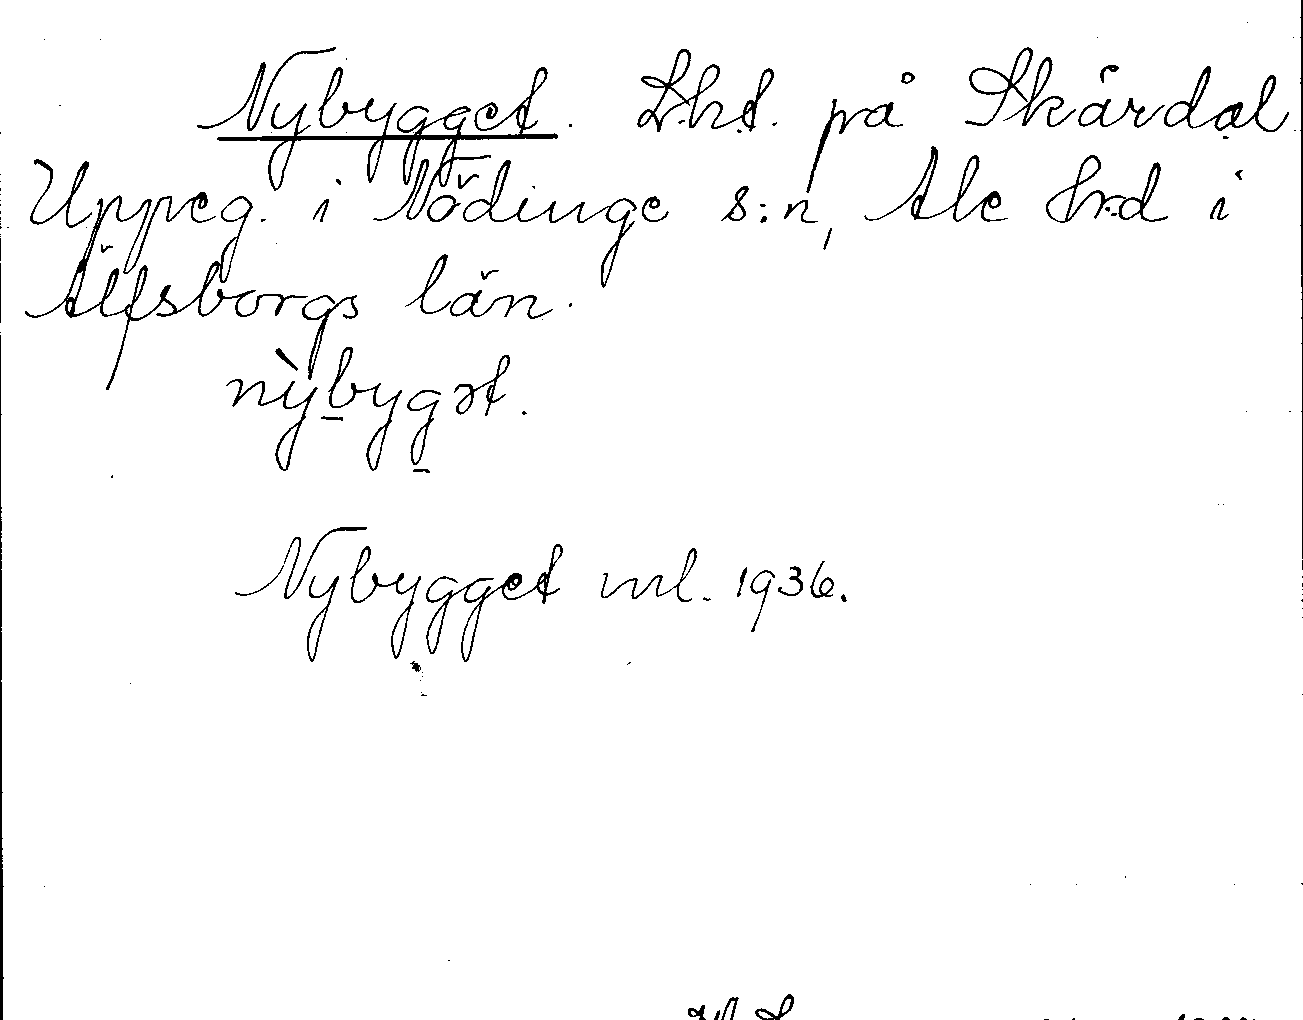 Nybygget. Lht. på Skårdal
Uppeg. i Nödinge s:n, Ale hrd i
Älfsborgs län.
nỳb̲yg̲ət.
Nybygget ml. 1936.